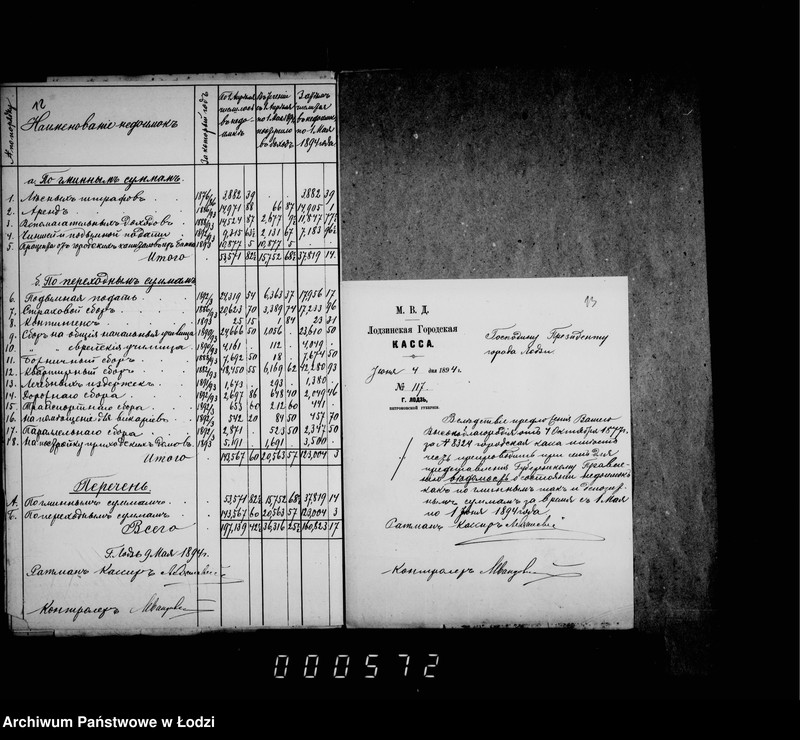 12
№ по порядку
Наименованіе недоимокъ
За который годъ
По 1 Апрѣля числилось въ недоимкѣ
Въ теченіи съ 1 Апрѣля по 1 Мая 1894 поступило въ доходъ
Затѣмъ числится въ недоимкѣ по 1 Мая 1894 года
а. По гминнымъ суммамъ.
1. Лѣсныхъ штрафовъ 3,882 39 3,882 39
2. Арендъ 14,971 88 66 87 14,905 1
3. Вспомагательныхъ доходовъ 14,524 87 2,677
4. 2,131 67 7,183
5. Проценты отъ городскихъ капиталовъ изъ Банка 1893 10,877 5 10,877 5
Итого 53,571 82½ 15,752 68½ 37,819 14
б. По переходнымъ суммамъ
6. Подымная подать 24,319 54 6,363 37 17,956 17
7. Страховой сборъ 20,623 70 3,389 74 17,233 96
8. Контингенсъ 1893 25 15 1 84 23 31
9. Сборъ на общія начальныя училища 24,666 50 1,056 23,610 50
10. " еврейскія училища 4,161 112 4,049
11. Больничный сборъ 7,692 50 18 7,674 50
12. Квартирный сборъ 48,450 55 6,169 62 42,280 93
13. Лечебныхъ издержекъ 1,673 293 1,380
14. Дорожнаго сбора 2,697 86 648 40 2,049 46
15. Транспортнаго сбора 653 60 212 60 441
16. На помощеніе для викаріевъ 542 20 84 50 457 70
17. 2,871 523 50 2,347 50
18. На постройку приходскихъ домовъ 1893 5,191 1,691 3,500
Итого 143,567 60 20,563 57 123,004 3
Перечень.
А. По гминнымъ суммамъ 53,571 82½ 15,752 68½ 37,819 14
Б. По переходнымъ суммамъ 143,567 60 20,563 57 123,004 3
Всего 197,139 42½ 36,316 25½ 160,823 17
Г. Лодзь 9 Мая 1894 г.
Ратманъ Кассиръ
Контролеръ
13
М. В. Д.
Лодзинская Городская
КАССА.
Іюня 4 дня 1894 г.
№ 117
Г. ЛОДЗЬ,
петроковской губерніи.
Господину Президенту
города Лодзи
Вслѣдствіе предложенія Вашего
Высокоблагородія отъ 7 Октября 1877 г.
за № 8324 городская касса имѣетъ
честь препроводить при семъ для
представленія Губернскому Правле-
нію вѣдомость о состояніи недоимокъ
какъ по гминнымъ такъ и депозит-
нымъ суммамъ за время съ 1 Мая
по 1 Іюня 1894 года
Ратманъ Кассиръ
Контролеръ
000572
Archiwum Państwowe w Łodzi